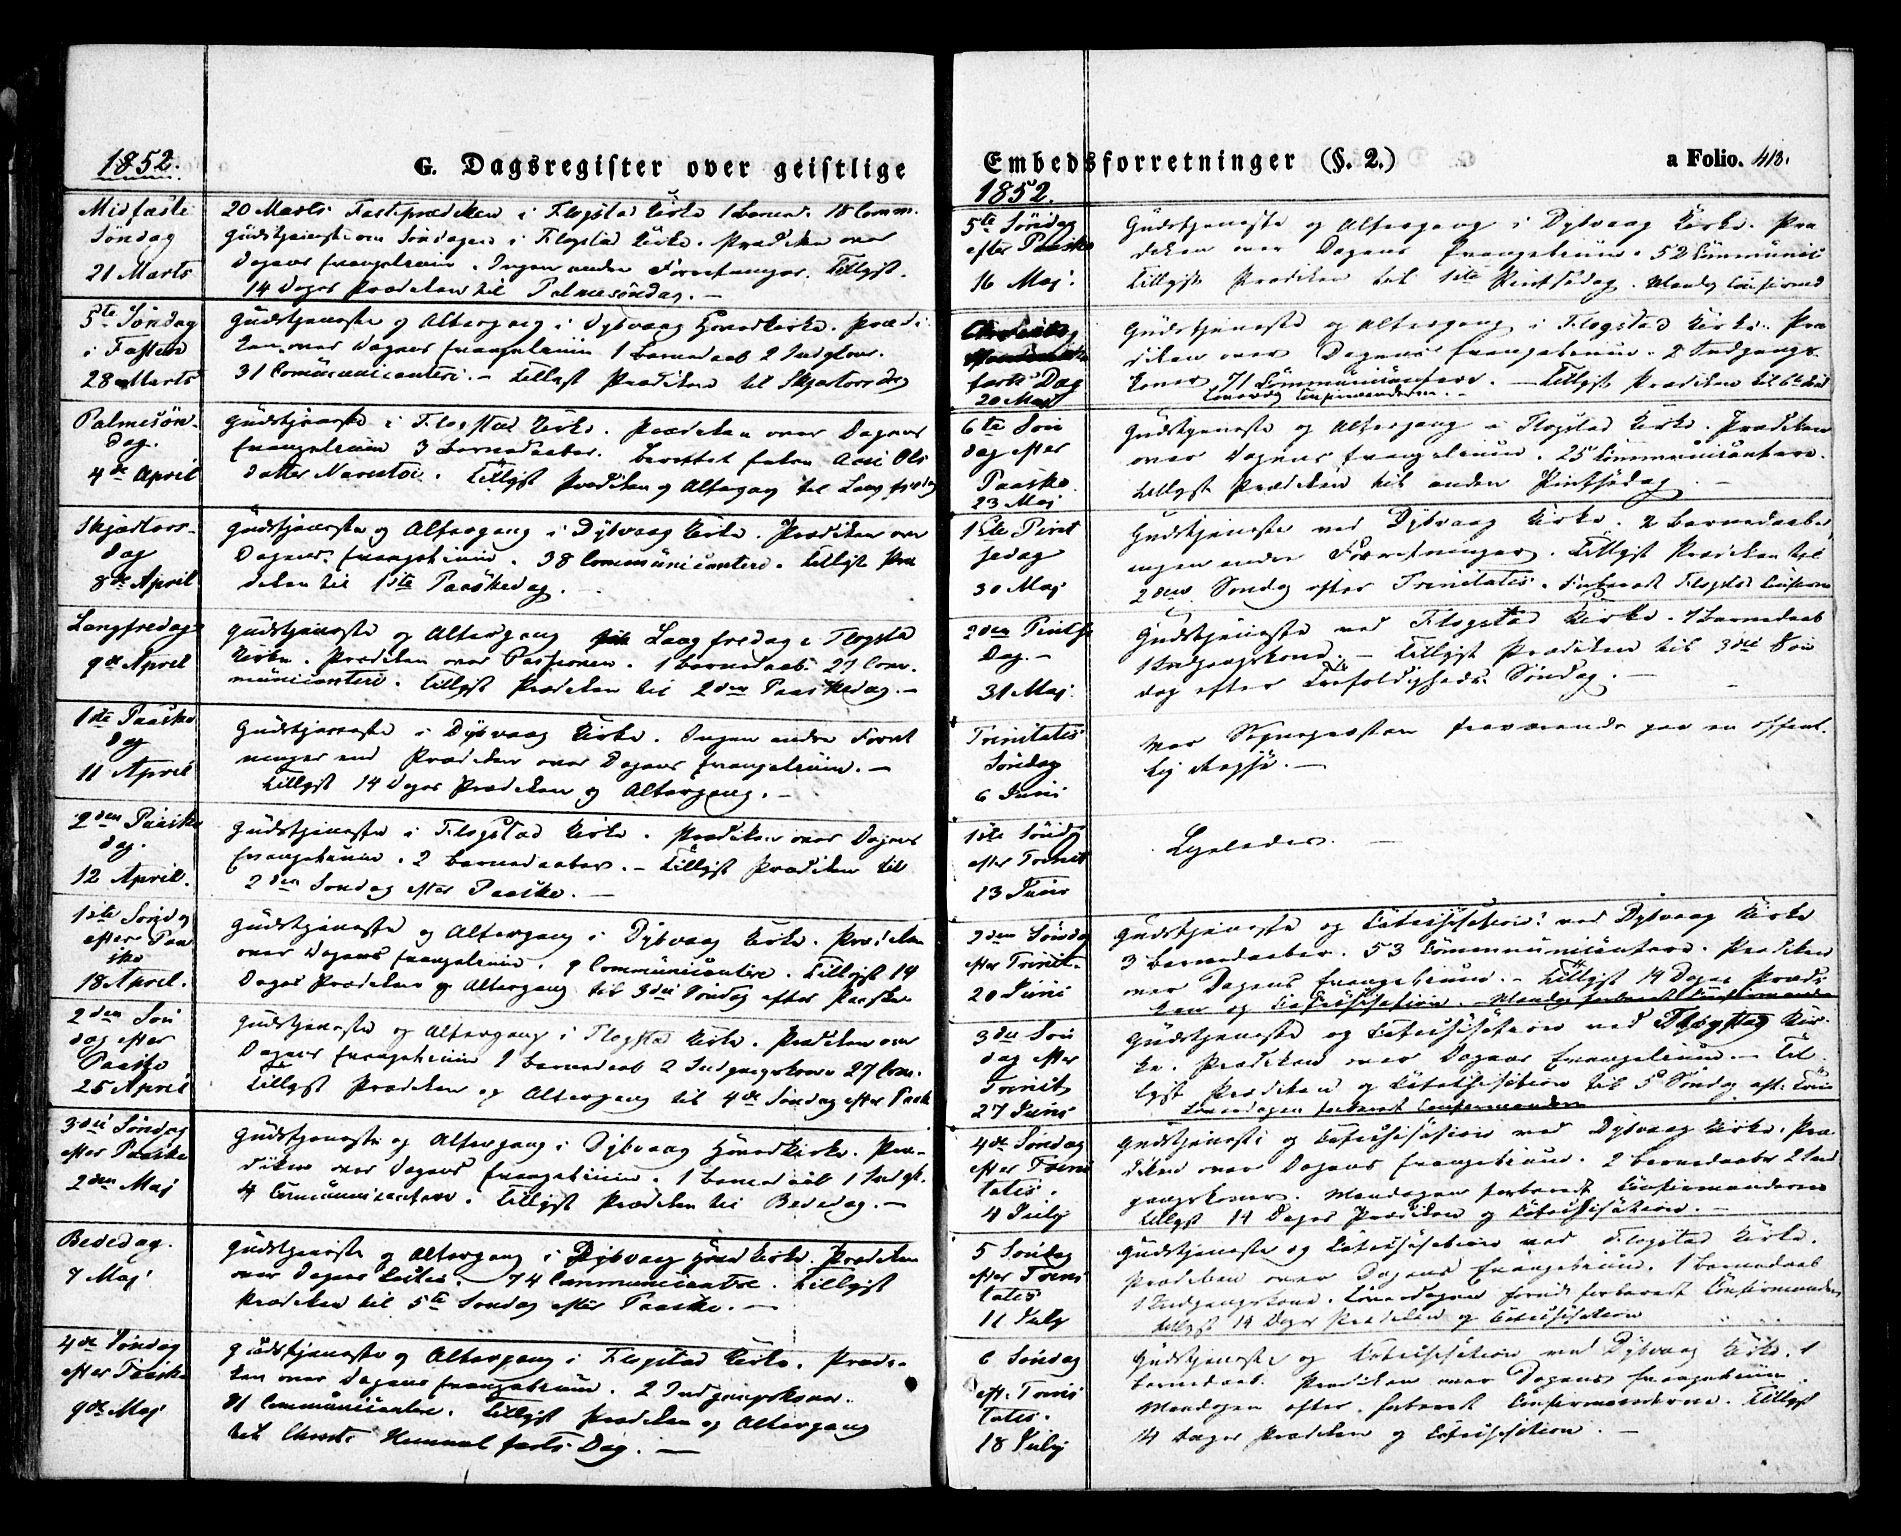 1852.
G. Dagsregister over geistlige
Midfaste
Søndag
21 Marts
20 Marts Fasteprædiken i Flogstad Kirke 1 Barned. 18 Comm.
Gudstjeneste om Søndagen i Flogstad Kirke. Prædiken over
Dagens Evangelium. Ingen andre Forretninger. Tillyst
14 Dages Prædiken til Palmesøndag. —
5te Søndag
i Fasten
28 Marts
Gudstjeneste og Altergang i Dybvaag Hovedkirke. Prædi-
ken over Dagens Evangelium 1 Barnedaab 2 Indgkoner.
31 Communicantere. — Tillyst Prædiken til Skjærtorsdag
Palmesøn-
dag.
4de April
Gudstjeneste i Flogstad Kirke. Prædiken over Dagens
Evangelium 3 Barnedaaber. Berettet Ols
datter Narestøe. Tillyst Prædiken og Altergang til Langfredag
Skjærtors-
dag
8de April
Gudstjeneste og Altergang i Dybvaag Kirke. Prædiken over
Dagens Evangelium. 38 Communicantere. Tillyst Præ
diken til 1ste Paaskedag. —
Langfredag
9de April
Gudstjeneste og Altergang Langfredag i Flogstad
Kirke. Prædiken over Passionen. 1 Barnedaab. 27 Com-
municantere. Tillyst Prædiken til 2den Paaskedag. —
1ste Paaske
dag
11 April
Gudstjeneste i Dybvaag Kirke. Ingen andre Forret
ninger end Prædiken over Dagens Evangelium. —
Tillyst 14 Dages Prædiken og Altergang. —
2den Paaske
dag.
12 April.
Gudstjeneste i Flogstad Kirke. Prædiken over Dagens
Evangelium. 2 Barnedaaber. — Tillyst Prædiken til
2den Søndag efter Paaske. —
1ste Søndag
efter Paa
ske
18 April.
Gudstjeneste og Altergang i Dybvaag Kirke. Prædiken
over Dagens Evangelium. 9 Communicantere. Tillyst 14
Dages Prædiken og Altergang til 3die Søndag efter Paaske
2den Søn
dag efter
Paaske
25 April
Gudstjeneste og Altergang i Flogstad Kirke. Prædiken over
Dagens Evangelium 1 Barnedaab 2 Indgangskoner 27 Com.
Tillyst Prædiken og Altergang til 4de Søndag efter Paask
3die Søndag
efter Paaske
2den Maj
Gudstjeneste og Altergang i Dybvaag Hovedkirke. Præ-
diken over Dagens Evangelium. 1 Barnedaab 1 Indgk.
4 Communicantere. Tillyst Prædiken til Bededag. —
Bededag.
7 Maj
Gudstjeneste og Altergang i Dybvaag Hovedkirke. Prædiken
over Dagens Textes. 74 Communicantere. Tillyst
Prædiken til 5te Søndag efter Paaske. —
4de Søndag
efter Paaske
9de Maj
Gudstjeneste og Altergang i Flogstad Kirke. Prædi-
ken over Dagens Evangelium. 2 Indgangskoner.
81 Communicantere. Tillyst Prædiken og Altergang
til Christi Himmelfarts Dag. —
Embedsforretninger (§. 2.)
a Folio. 418.
1852.
5te Søndag
efter Paaske
16 Maj.
Gudstjeneste og Altergang i Dybvaag Kirke. Præ
diken over Dagens Evangelium. 52 Communic
Tillyst Prædiken til 1ste Pintsedag.
farts Dag
20 Maj
Gudstjeneste og Altergang i Flogstad Kirke. Præ
diken over Dagens Evangelium. 2 Indgangs-
koner 71 Communicantere. — Tillyst Prædiken til 6te Sønd
6te Søn
dag efter
Paaske
23 Maj
Gudstjeneste og Altergang i Flogstad Kirke. Prædiken
over Dagens Evangelium. 25 Communicantere.
Tillyst Prædiken til anden Pintsedag. —
1ste Pint
sedag
30 Maj
Gudstjeneste ved Dybvaag Kirke. 2 Barnedaaber
ingen andre Forretninger. Tillyst Prædiken til
2den Søndag efter Trinitatis. Forberedt Flogstad Confirm
2den Pintse
Dag. —
31 Maj.
Gudstjeneste ved Flogstad Kirke. 1 Barnedaab
1 Indgangskone. — Tillyst Prædiken til 3die Søn
dag efter Trefoldigheds Søndag. —
Trinitatis
Søndag
6 Juni
Var Sognepresten fraværende paa en offent-
lig Rejse. —
1ste Søndag
efter Trinit
13 Juni
Ligeledes. —
2den Søndag
efter Trinit.
20 Juni
Gudstjeneste og Catechisation ved Dybvaag Kirke
3 Barnedaaber. 53 Communicantere. Prædiken
over Dagens Evangelium. — Tillyst 14 Dages Prædi-
ken og Catechisation. — Mandag forberedt Confirmande
3die Søn
dag efter
Trinit
27 Juni
Gudstjeneste og Catechisation ved Flogstad Kir-
ke. Prædiken over Dagens Evangelium. — Til-
lyst Prædiken og Catechisation til 5 Søndag eft. Trin
Løverdagen forberedt Confirmanderne
4de Søndag
efter Trini
tatis.
4 July
Gudstjeneste og Catechisation ved Dybvaag Kirke. Præ
diken over Dagens Evangelium. 2 Barnedaaber 2 Ind
gangskoner. Mandagen forberedt Confirmanderne
Tillyst 14 Dages Prædiken og Catechisation. —
5 Søndag
efter Trini
tatis
11 July
Gudstjeneste og Catechisation ved Flogstad Kirke.
Prædiken over Dagens Evangelium. 1 Barnedaab
1 Indgangskone. Løverdagen forud forberedt Confirmander
Tillyst 14 Dages Prædiken og Catechisation
6 Søndag
eft. Trini
tatis.
18 July
Gudstjeneste og Catechisation ved Dybvaag Kirke. 1
Barnedaab. Prædiken over Dagens Evangelium.
Mandagen efter forberedt Confirmanderne. Tillyst
14 Dages Prædiken og Catechisation. —